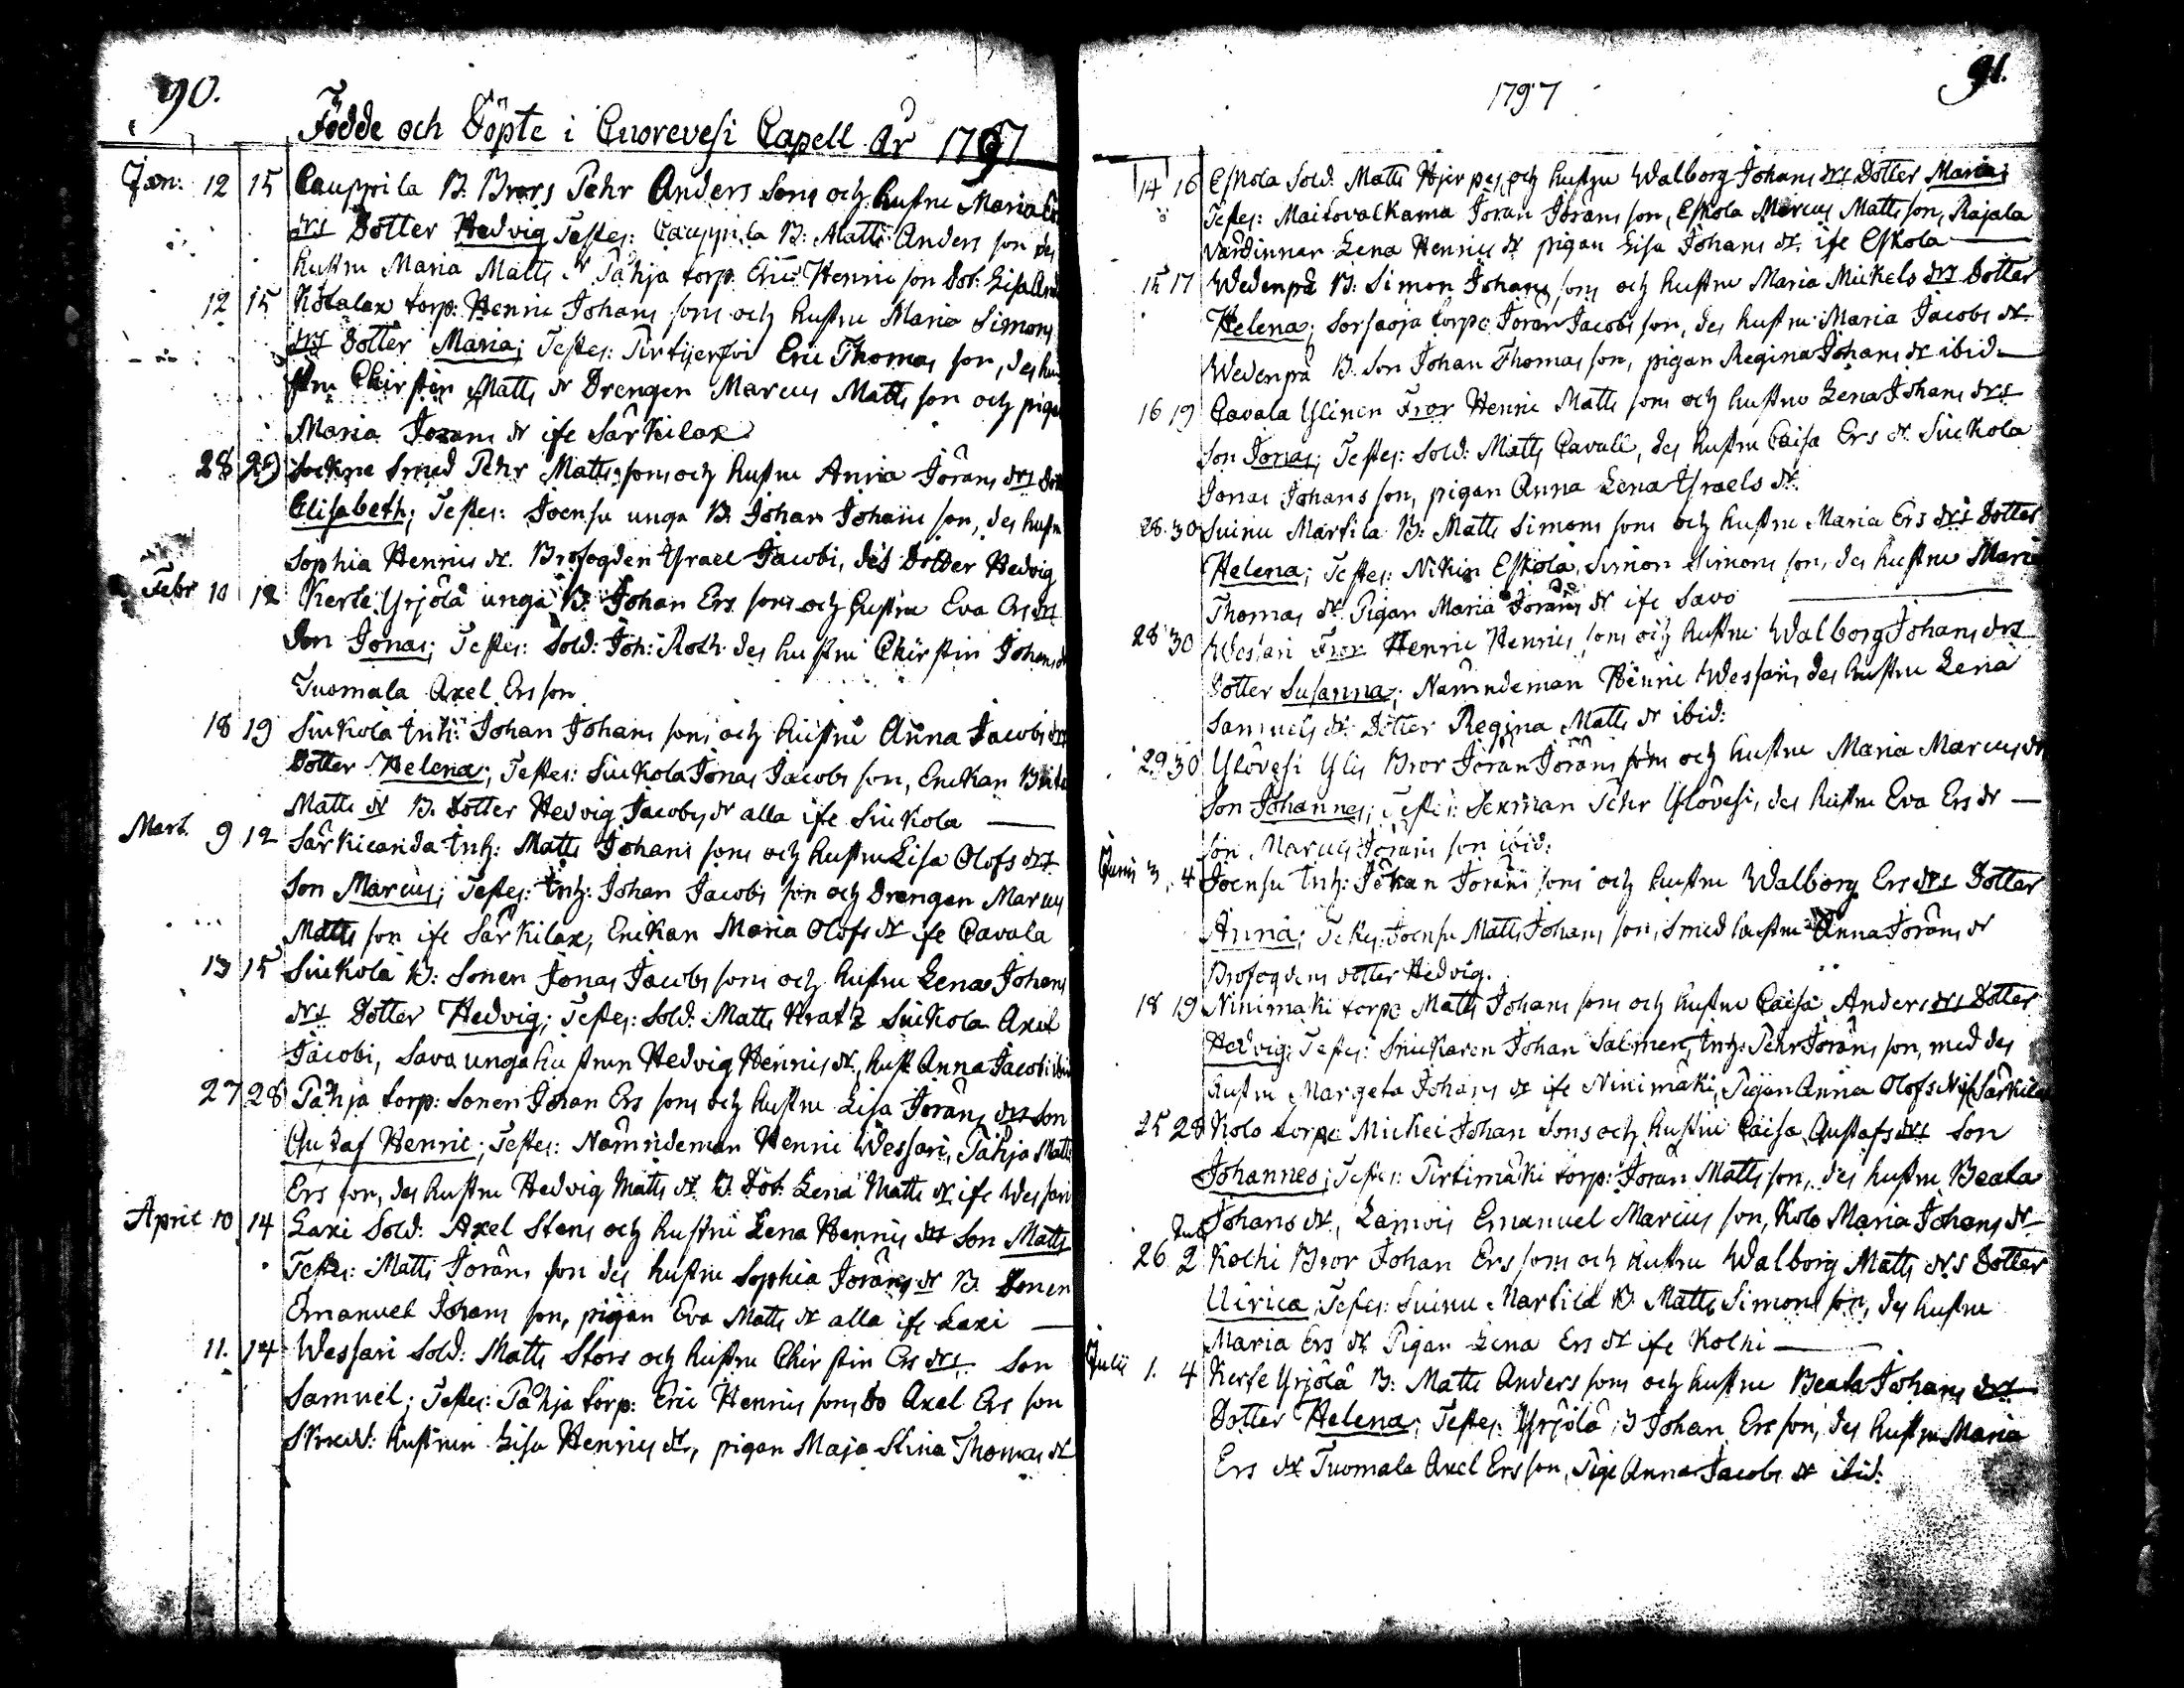 90.
Födde och Döpte i Cuorevesi Capell År 1797
Jan: 12 15 Cauppila B. Brors Pehr Anders Sons och hustru Maria
drs Dotter Hedvig Testes: Cauppila B: Matts Anders son des
hustru Maria Matts dr Pähja torp. Eric Henric son Dot: Lisa
12 15 Kotalax torp: Henric Johans sons och hustru Maria Simons
drs Dotter Maria; Testes: Eric Thomas son, des hu
stru Chirstin Matts dr Drengen Marcus Matts son och pigan
Maria Jorans dr ifr Särkilax
28 29 Sockne Smed Pehr Matts sons och hustru Anna Jörans drs Dott
Elisabeth; Testes: Joensu unga B. Johan Johans son, des hustru
Sophia Henrics dr. Brofogden Ysrael Jacobi, des Dotter Hedvig
Febr 10 12 Kerte Yrjölä unga B. Johan Ers sons och hustru Eva Ers drs
Son Jonas; Testes: Sold: Joh: Roth des hustru Chirstin Johans dr
Tuomala Axel Ers son
18 19 Siukola Inh: Johan Johans sons och hustru Anna Jacobs drs
Dotter Helena; Testes: Siukola Jonas Jacobs son, Enckan Brita
Matts dr B. Dotter Hedvig Jacobs dr alla ifr Siukola
Mart. 9 12 Särkicanda Inh: Matts Johans sons och hustru Lisa Olofs drs
Son Marcus; Testes: Inh: Johan Jacobs son och Drengen Marcus
Matts son ifr Särkilax, Enckan Maria Olofs dr ifr Cavala
13 15 Siukola B: Sonen Jonas Jacobs sons och hustru Lena Johans
drs Dotter Hedvig; Testes: Sold: Matts Kratz Siukola Axel
Jacobi, Savo unga hustrun Hedvig Henrics dr., hust Anna Jacobi ibid
27 28 Pähja torp: Sonen Johan Ers sons och hustru Lisa Jörans drs Son
Gustaf Henric; Testes: Nämndeman Henric Wessari, Pähja Matts
Ers son, des hustru Hedvig Matts dr. B. Dot: Lena Matts dr ifr Wessari
April 10 14 Laxi Sold: Axel Stens och hustru Lena Henrics drs Son Matts
Testes: Matts Jörans son des hustru Sophia Jörans dr B. Sonen
Emanuel Johans son, pigan Eva Matts dr alla ifr Laxi
11. 14 Wessari Sold: Matts Stors och hustru Chirstin Ers drs Son
Samuel; Testes: Pähja torp: Eric Henrics son, do Axel Ers son
hustrun Lisa Henrics dr, pigan Maja Stina Thomas dr
91.
1797
14 16 Eskola Sold. Matts Hjerpes och hustru Walborg Johans drs Dotter Maria;
Testes: Maitovalkama Jöran Jörans son, Eskola Marcus Matts son, Rajala
Värdinnan Lena Henrics dr pigan Lisa Johans dr. ifr Eskola
15 17 Wedenpä B: Simon Johans sons och hustru Maria Mickels drs Dotter
Helena; torp: Jöran Jacobs son, des hustru Maria Jacobs dr.
Wedenpä B. Son Johan Thomas son, pigan Regina Johans dr ibid.
16 19 Cavala Ylinen Bror Henric Matts sons och hustru Lena Johans drs
Son Jonas; Testes: Sold: Matts Cavall, des hustru Caisa Ers dr. Siukola
Jonas Johans son, pigan Anna Lena Ysraels dr.
28. 30 Suinu Martila B: Matts Simons sons och hustru Maria Ers drs Dotter
Helena; Testes: Eskola, Simon Simons son, des hustru Maria
Thomas dr. Pigan Maria Jörans dr ifr Savo
28 30 Wessari Bror Henric Henrics sons och hustru Walborg Johans drs
Dotter Susanna; Nämndeman Henric Wessari, des hustru Lena
Samuels dr. Dotter Regina Matts dr ibid:
29 30 Ylövesi Ylis Bror Jöran Jörans sons och hustru Maria Marcus dr
Son Johannes; Testes: Sexman Pehr Ylövesi, des hustru Eva Ers dr
Son Marcus Jörans son ibid:
Junii 3. 4 Joensu Inh: Johan Jörans sons och hustru Walborg Ers drs Dotter
Anna; Testes: Joensu Matts Johans son, Smed hustru Anna Jörans dr
Brofogdens dotter Hedvig.
18 19 Ninimäki torp: Matts Johans sons och hustru Caisa Anders drs Dotter
Hedvig; Testes: Snickaren Johan Salmen, Inh: Pehr Jörans son, med des
hustru Margeta Johans dr ifr Ninimäki, Pigan Anna Olofs dr ifr Särkilax
25 28 Kolo torp: Mickel Johan Sons och hustru Caisa Gustafs drs Son
Johannes; Testes: Pirtimäki torp: Jöran Matts son, des hustru Beata
Johans dr., Lamois Emanuel Marcus son, Kolo Maria Johans dr
Jul
26 2 Kolhi Bror Johan Ers sons och hustru Walborg Matts drs Dotter
Ulrica; Testes: Suinu Martila B. Matts Simons son, des hustru
Maria Ers dr Pigan Lena Ers dr ifr Kolhi
Julii 1. 4 Kerte Yrjölä B: Matts Anders sons och hustru Beata Johans drs
Dotter Helena; Testes: Yrjölä B Johan Ers son, des hustru Maria
Ers dr Tuomala Axel Ers son, Pige Anna Jacobs dr ibid: